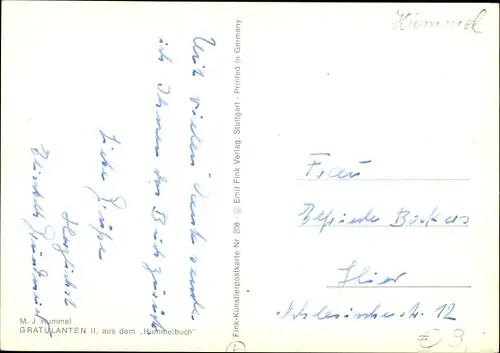 Hummel
Mit vielen Dank sende
ich Ihnen das Buch zurück
Liebe Grüße
Herzlichst
M. J. Hummel
GRATULANTEN II, aus dem „Hummelbuch"
Fink-Künstlerpostkarte Nr. 209 - © Emil Fink Verlag, Stuttgart - Printed in Germany
Frau
Elfriede
Hier
Schlesischestr. 12
€ 3,